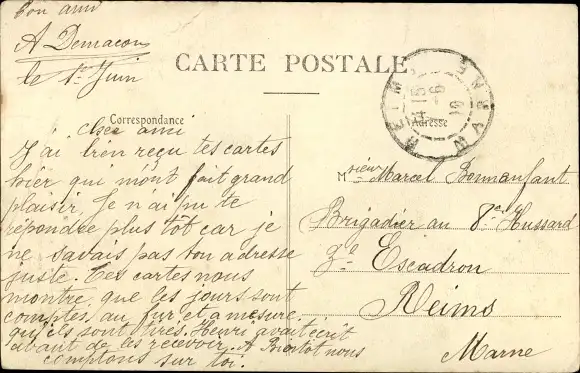 Ton ami
A Demacon
le 1er Juin
CARTE POSTALE
Correspondance
Adresse
REIMS
MARNE
Cher ami
J'ai bien reçu tes cartes
hier qui m'ont fait grand
plaisir, Je n'ai pu te
repondre plus tôt car je
ne savais pas ton adresse
juste. Tes cartes nous
montre, que les jours sont
comptés, au fur et a mesure
qu'ils sont tirés. Henri avait écrit
avant de les recevoir. A Bientot nous
comptons sur toi.
Monsieur Marcel Bonnanfant
Brigadier au 8e Hussard
2e Escadron
Reims
Marne